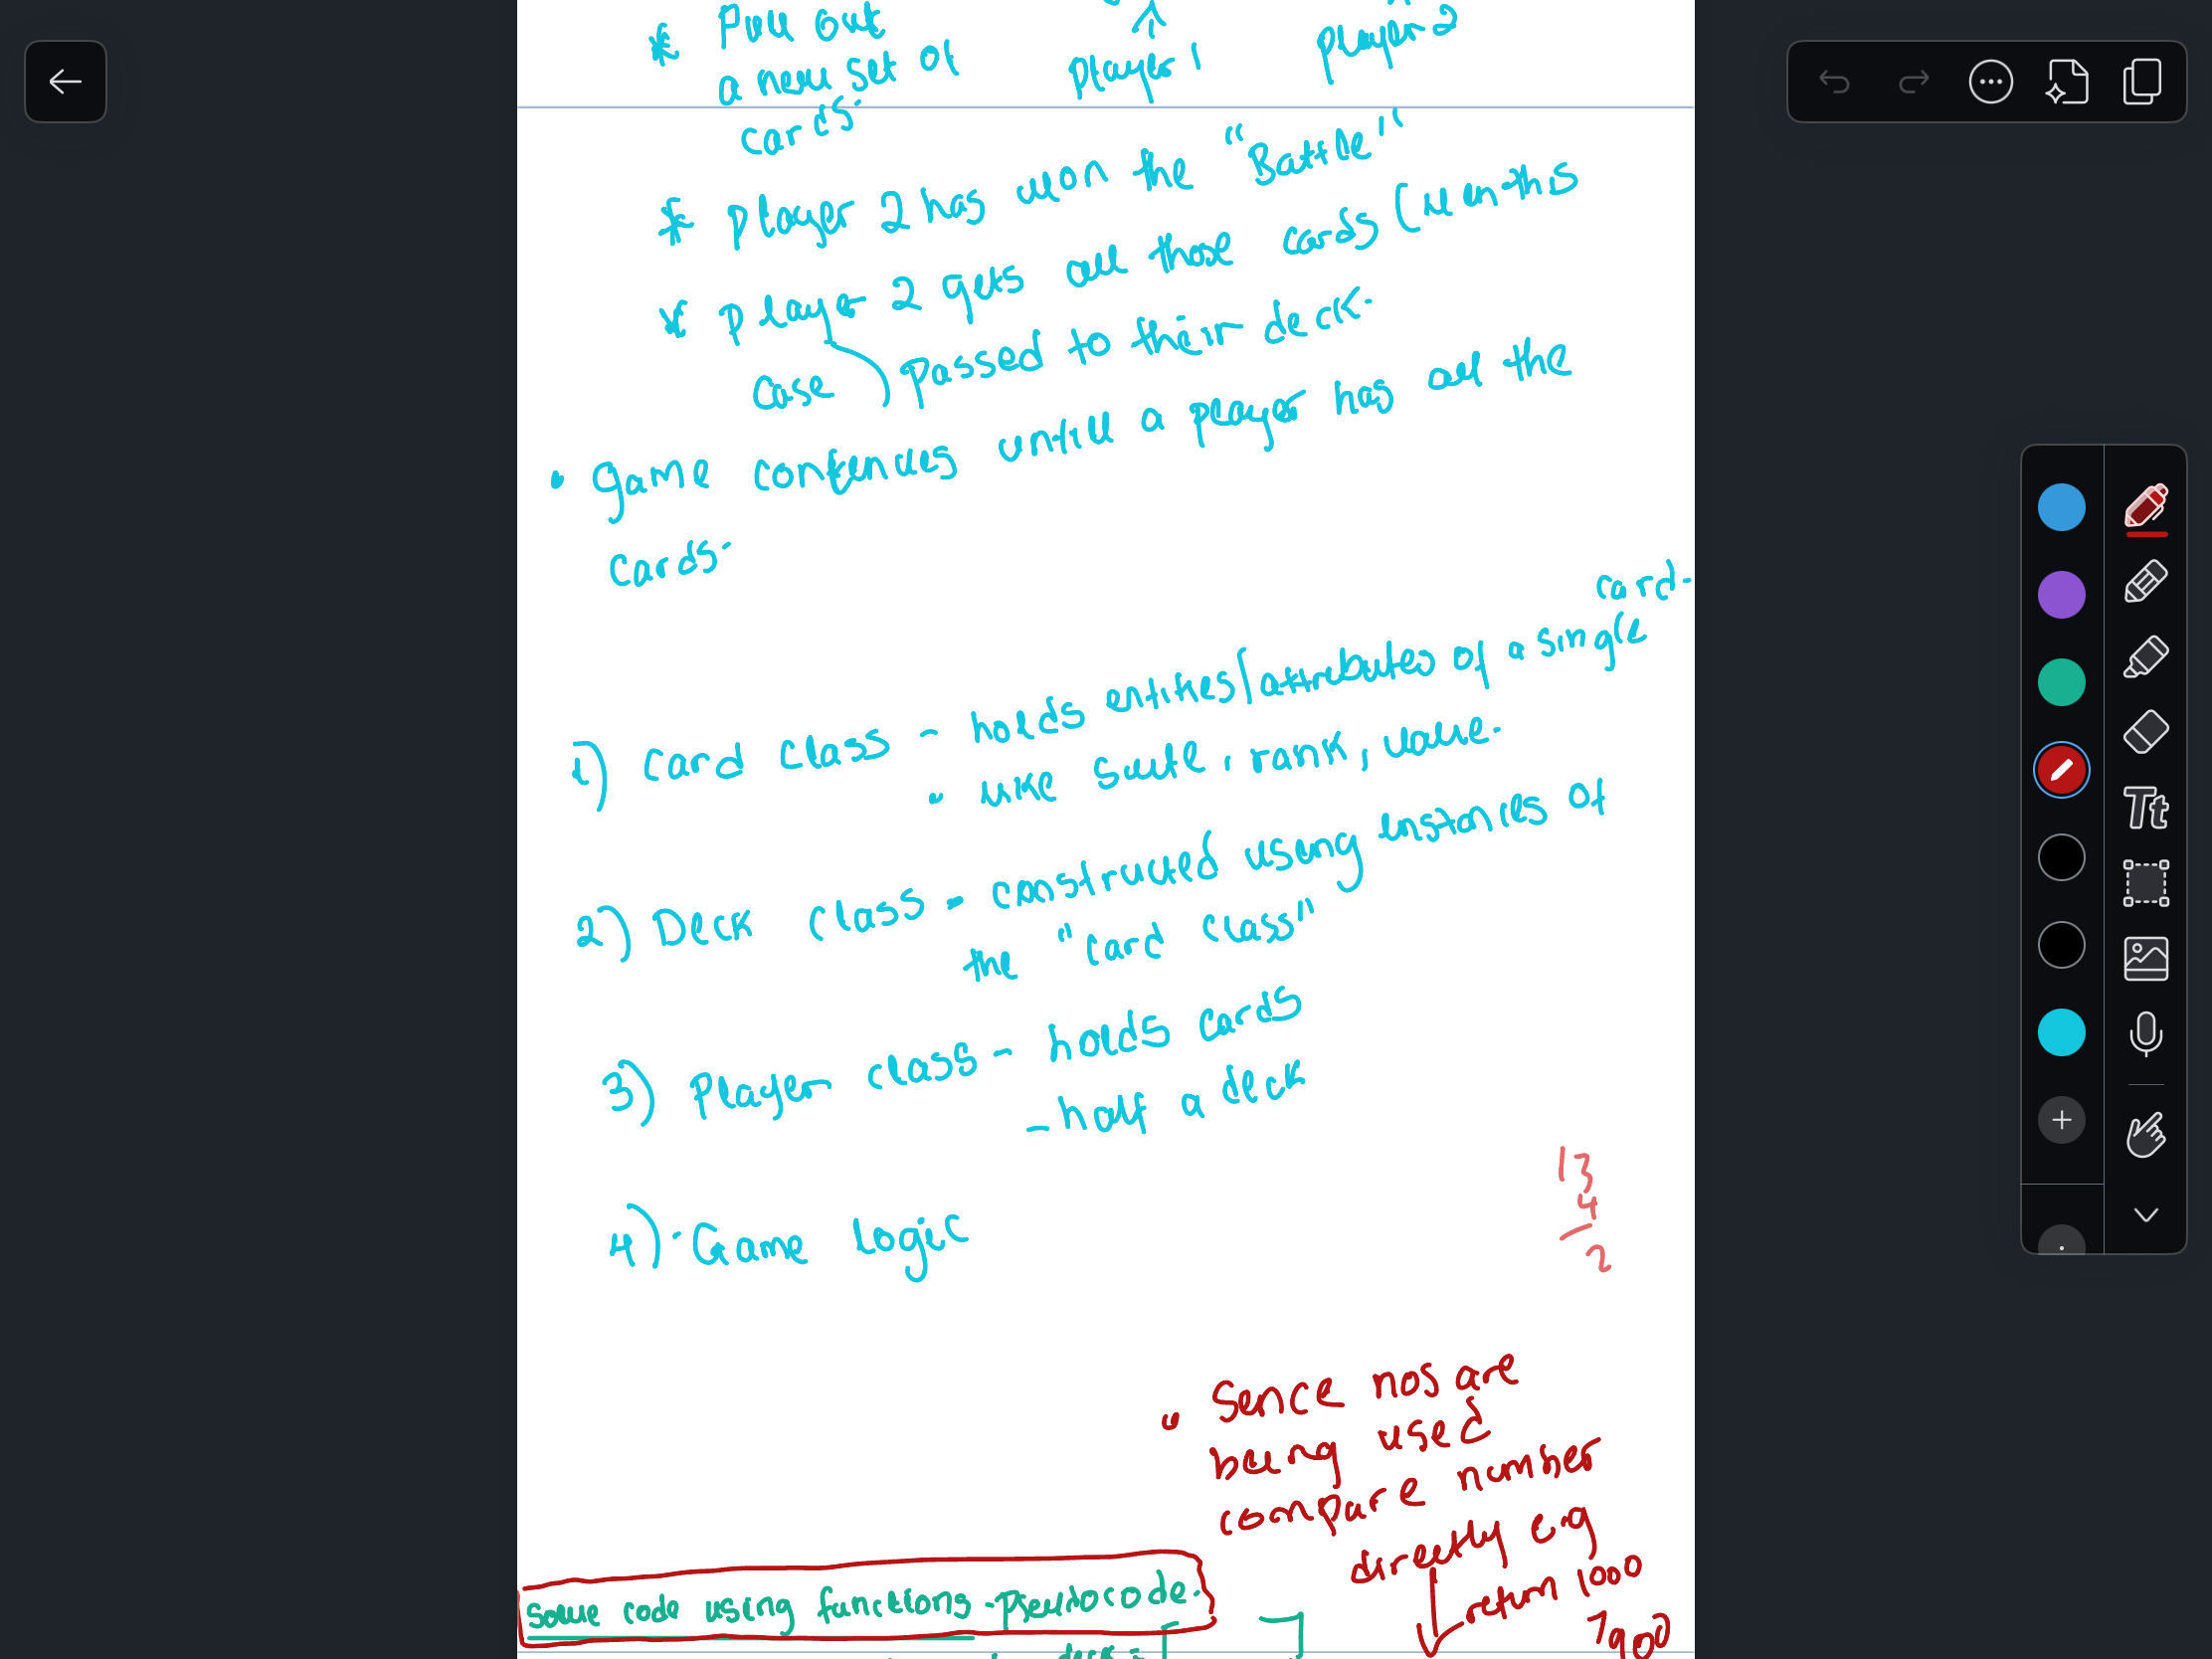 * Pull out
a new set of
cards.
player 1
player 2
* player 2 has won the "Battle"
* player 2 gets all those cards (wenthis
case) passed to their deck.
• game contenues untill a player has all the
cards.
1) Card class - holds entities/attributes of a single card.
• like suite, rank, value.
2) Deck class - constructed using instances of
the "card class"
3) Player class - holds cards
- half a deck
4) Game Logic
13
4
2
• Sence nos are
being used
compare number
directly e.g
return 1000
7900
solve code using functions - pseudocode.